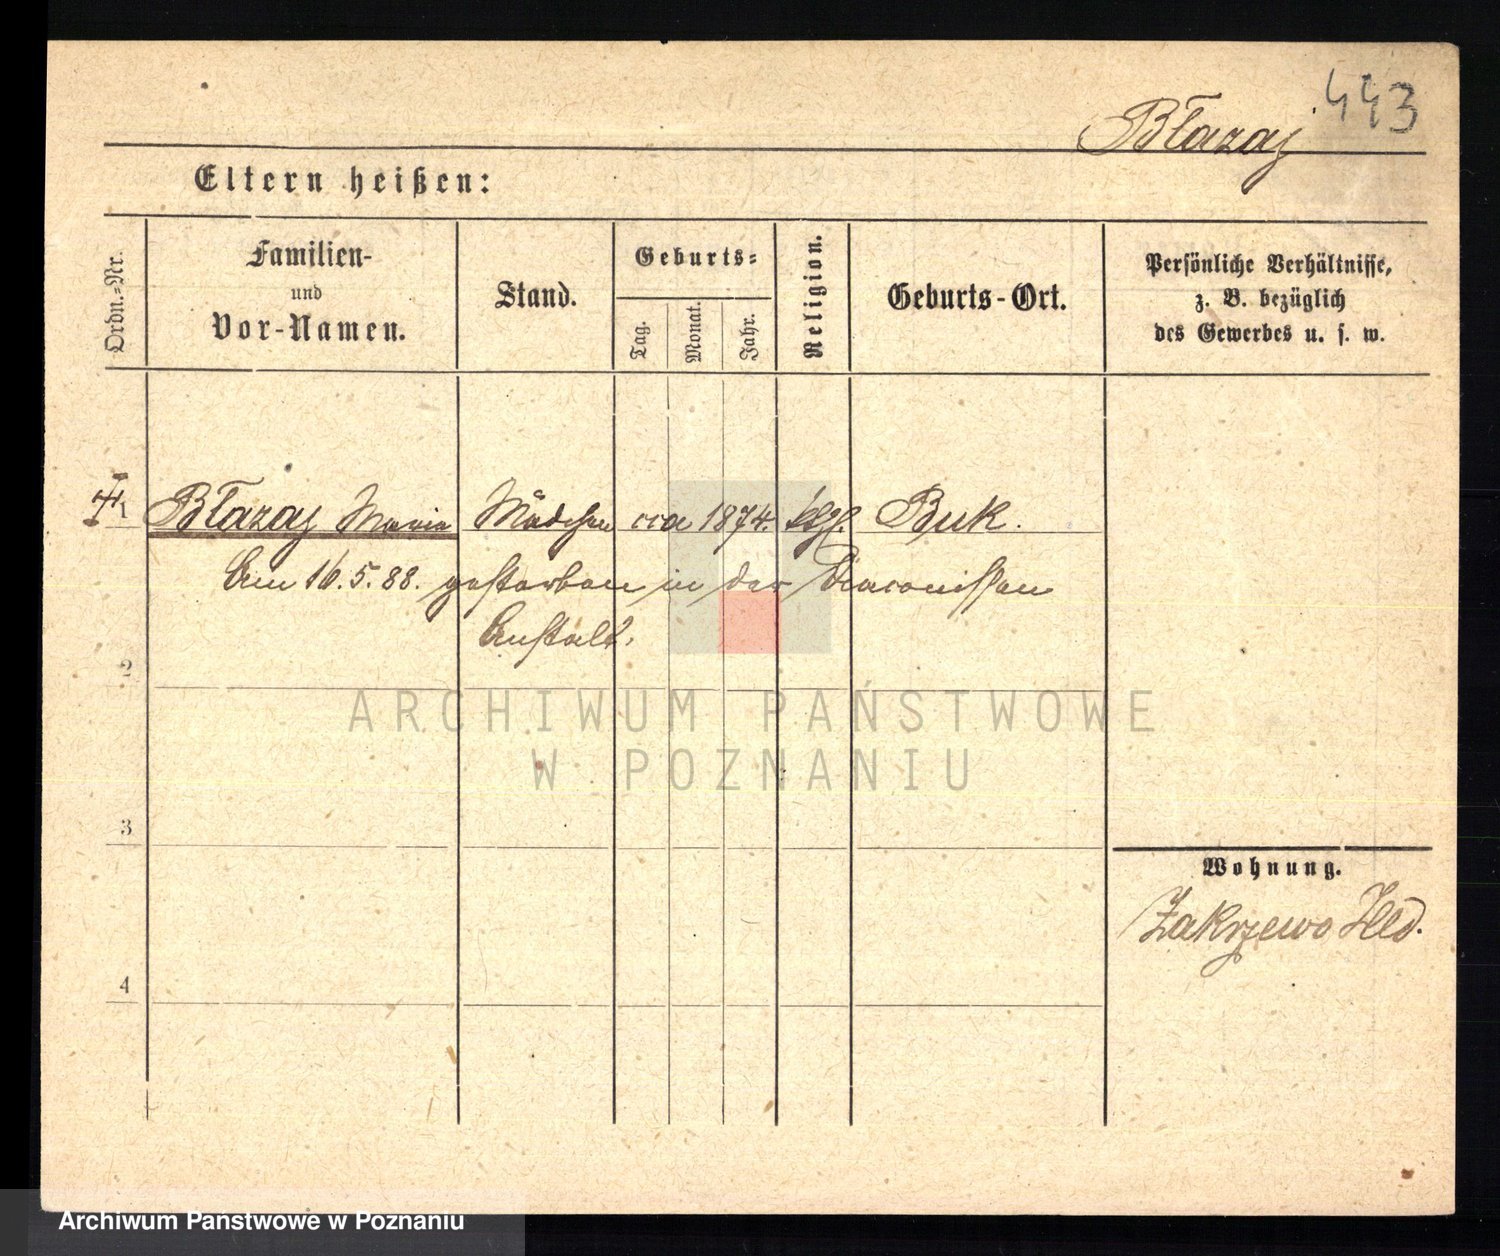 443
Błazaj
Eltern heißen:
Ordn.-Nr.
Familien-
und
Vor-Namen.
Stand.
Geburts-
Tag.
Monat.
Jahr.
Religion.
Geburts-Ort.
Persönliche Verhältnisse,
z. B. bezüglich
des Gewerbes u. s. w.
1 Błazaj Maria Mädchen cca 1874. Buk.
Am 16.5.88. gestorben in der Diaconissen
Anstalt.
2
ARCHIWUM PAŃSTWOWE
W POZNANIU
3
Wohnung.
Zakrzewo Hld.
4
Archiwum Państwowe w Poznaniu